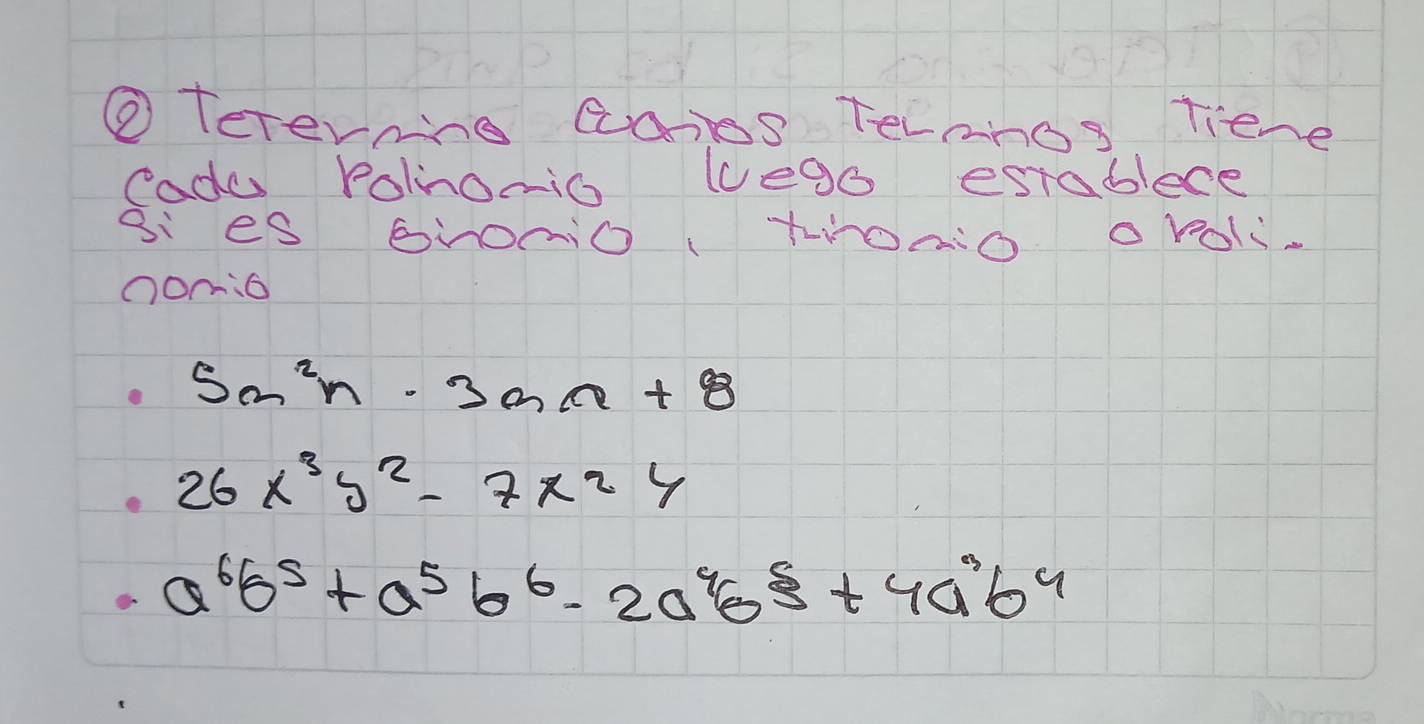 ② Tetermina cuantos Terminos Tiene
cada Polinomio luego establece
si es binomio, trinomio o poli-
nomio
• 5m²n - 3mn + 8
• 26x³y² - 7x2y
• a⁶b⁵ + a⁵b⁶ - 2a⁴b⁵ + 4a³b⁴